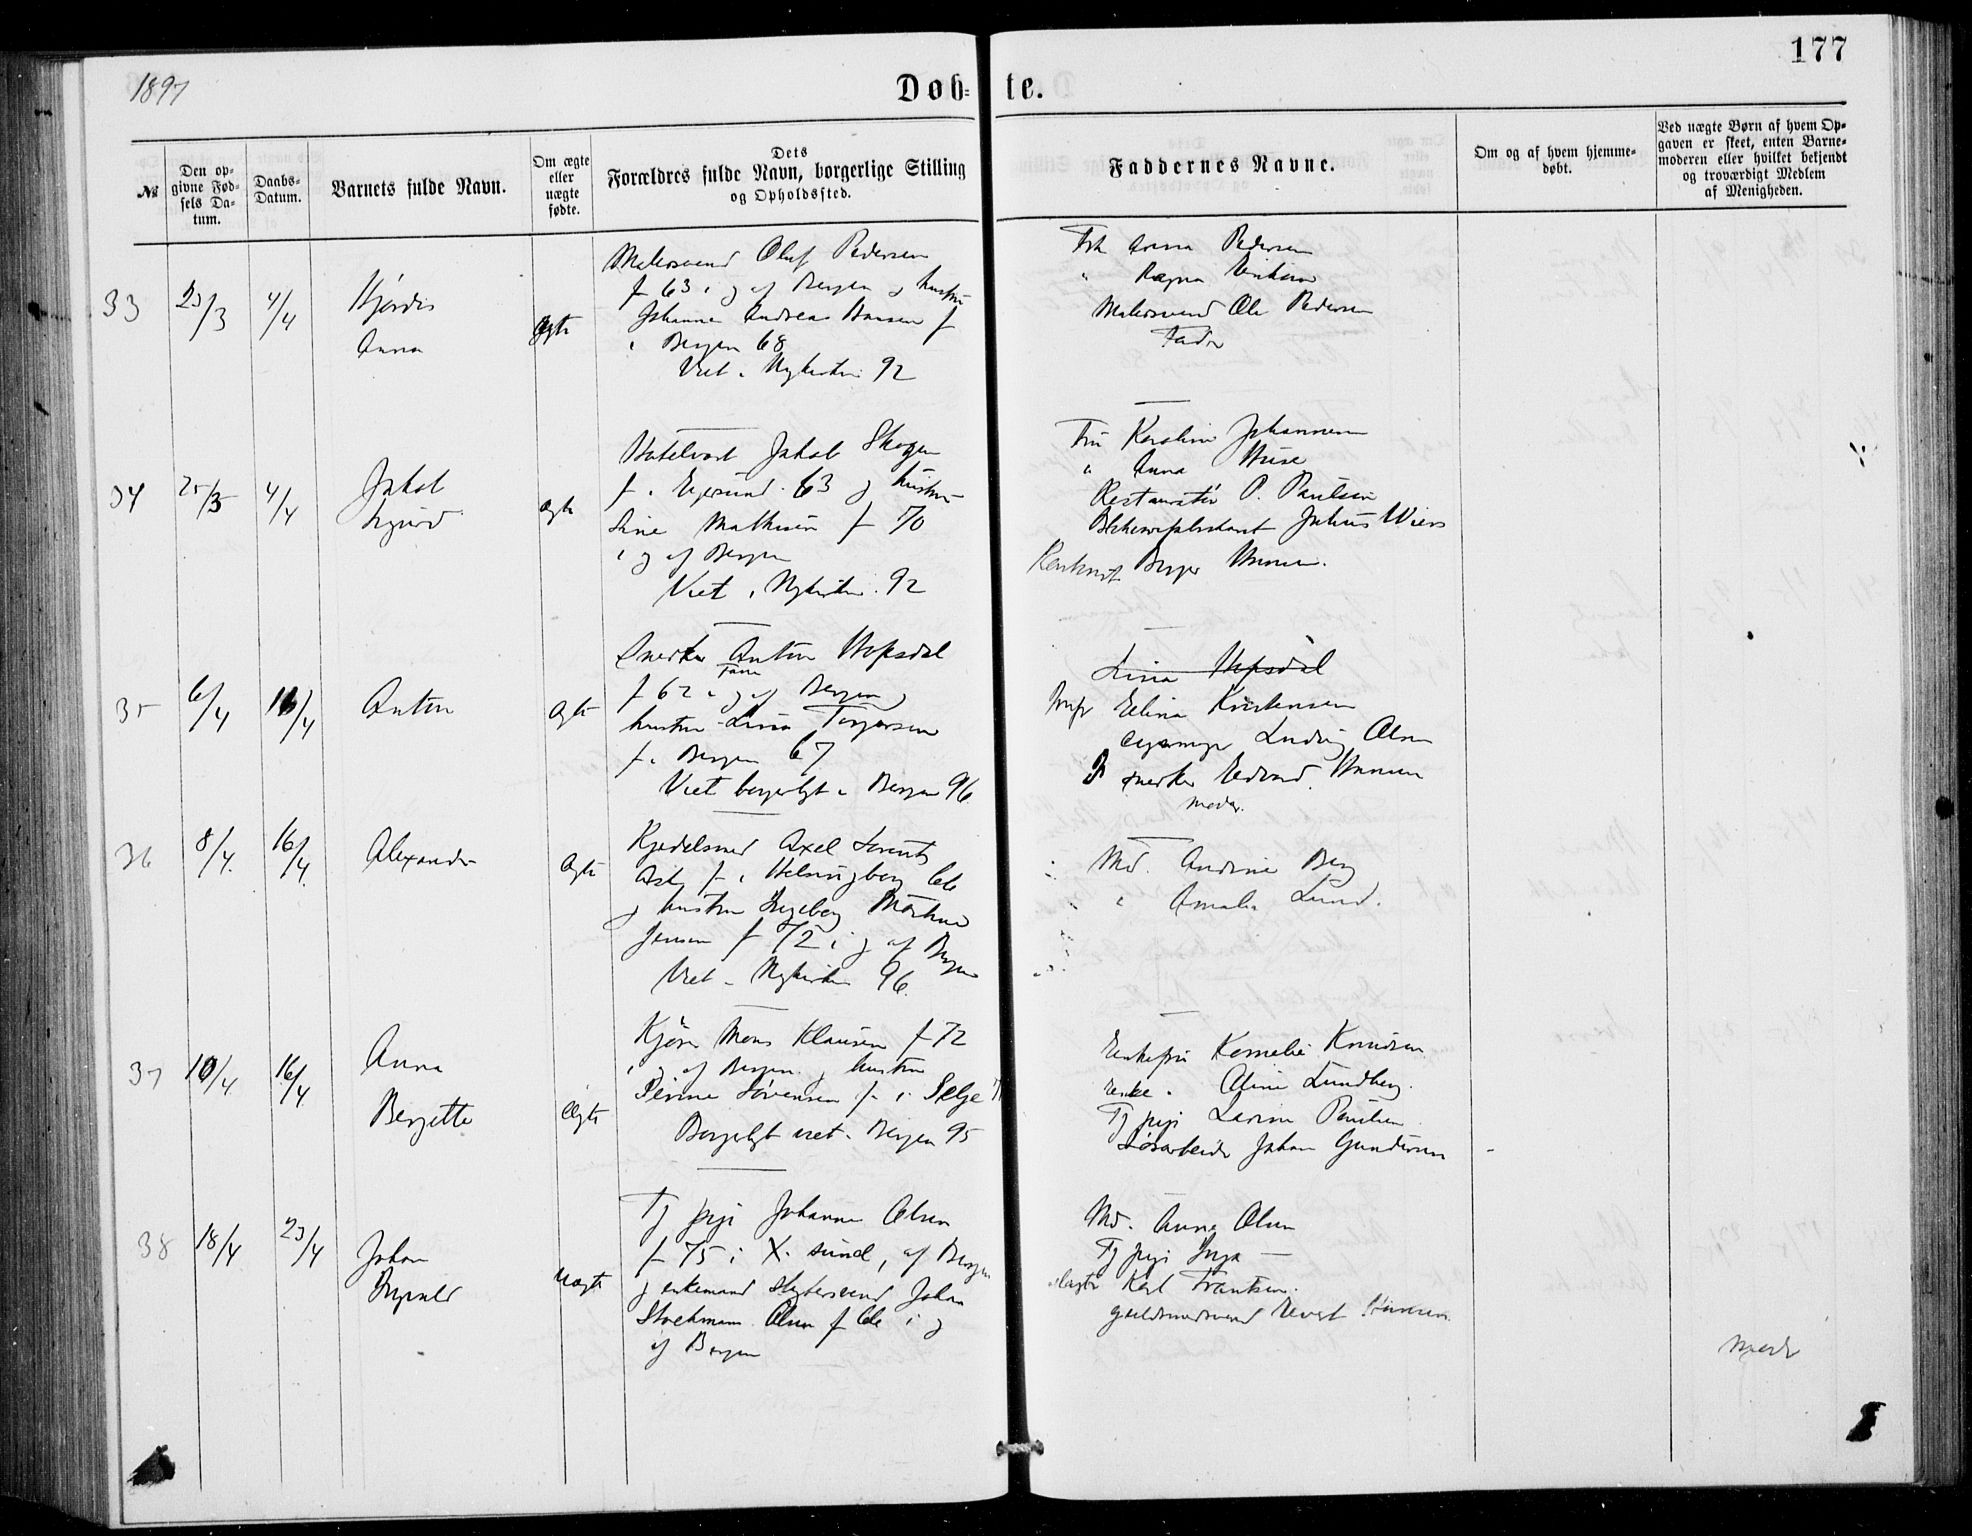 1897
Døb=
te.
177
№
Den op-
givne Fød-
sels Da-
tum.
Daabs-
Datum.
Barnets fulde Navn.
Om ægte
eller
uægte
fødte.
Dets
Forældres fulde Navn, borgerlige Stilling
og Opholdssted.
Faddernes Navne.
Om og af hvem hjemme-
døbt.
Ved uægte Børn af hvem Op-
gaven er skeet, enten Barne-
moderen eller hvilket bekjendt
og troværdigt Medlem
af Menigheden.
33
23/3
4/4
Hjördis
Anna
Ægte
Malersvend Oluf Pedersen
f 63 i g af Bergen g hustru
Johanne Andrea Hansen f
i Bergen 68
Viet i Nykirken 92
Frk Anna Pedersen
" Ragna
Malersvend Ole Pedersen
Fader
34
25/3
4/4
Jakob
Sigurd
ægte
Hotelvært Jakob Skogen
f. i Egersund 63 g hustru
Line Mathisen f 70
i g af Bergen
Viet i Nykirken 92
Fru Karoline Johannesen
" Anna
Restauratør P. Paulsen
Julius Wiers
Birger Hansen.
35
6/4
16/4
Anton
ægte
Snerker Anton Hopsdal
f 62 i g af Bergen g
hustru Lina Torgersen
f. i Bergen 67
Viet borgerligt i Bergen 96
Lina Hopsdal
Elina Kristensen
Ludvig Olsen
snerker Edvard Hansen
moder.
36
8/4.
16/4.
Alexander
ægte
Kjedelsmed Axel Lorents
f. i Helsingborg 66
g hustru Ingeborg
Jensen f 72 i g af Bergen
Viet i Nykirken 96.
Md. Andrine Berg
" Amalie Lund.
37
10/4
16/4
Anna
Bergette
ægte
Kjører Mons Klausen f 72
i g af Bergen g hustru
Sörensen f. i Selje
Borgerligt viet i Bergen 95
Enkefru Kornelia Knudsen
enke. Oline Lundberg.
Tj pige Lavine Paulsen
Løsarbeider Johan Gundersen
38
18/4
23/4
Johan
uægte
Tj pige Johanne Olsen
f 75 i X. sund, af Bergen
g enkemand Slagtersvend Johan
Stockmann Olsen f 66 i g
af Bergen
Md. Anna Olsen
Tj pige Inga —
slagter Karl Frantsen.
guldsmedsvend Evert
moder